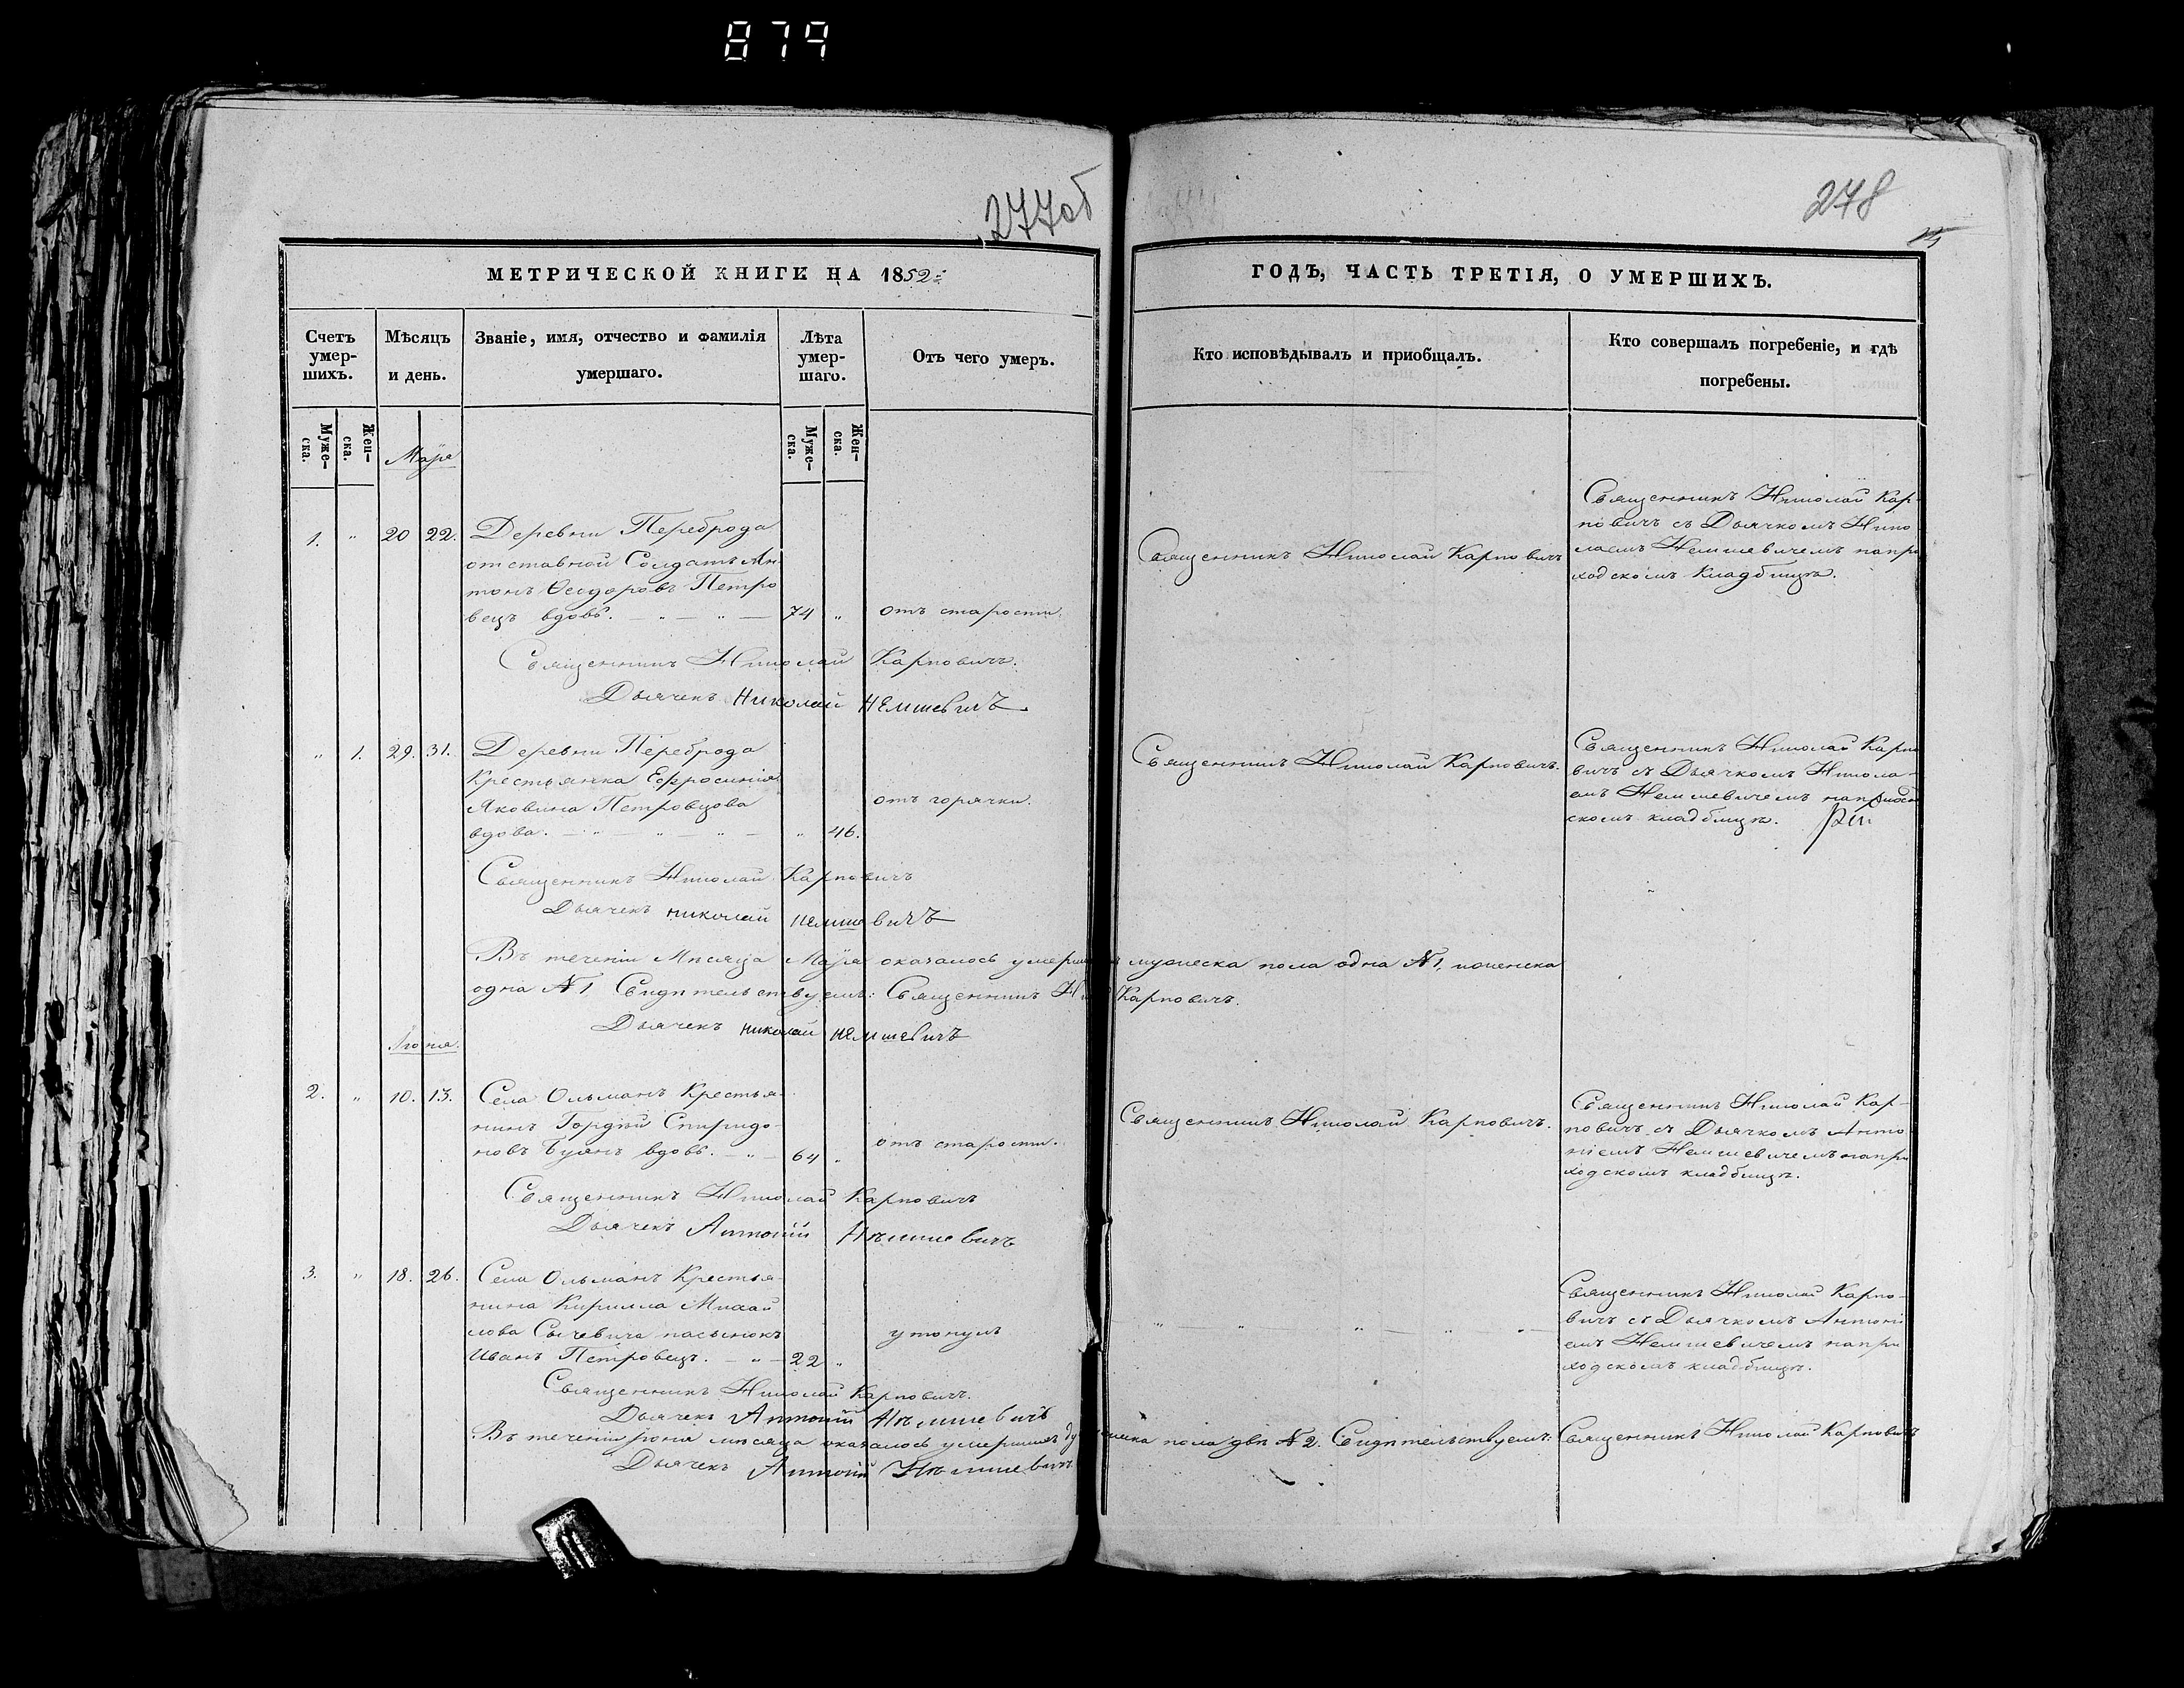 879
277об
278
МЕТРИЧЕСКОЙ КНИГИ НА 1852й
ГОДЪ, ЧАСТЬ ТРЕТІЯ, О УМЕРШИХЪ.
Счетъ умер-шихъ.
Мѣсяцъ и день.
Званіе, имя, отчество и фамилія умершаго.
Лѣта умер-шаго.
Отъ чего умеръ.
Кто исповѣдывалъ и приобщалъ.
Кто совершалъ погребеніе, и гдѣ погребены.
Муже-ска.
Жен-ска.
Муже-ска.
Жен-ска.
Маія
1. " 20 22. Деревни Переброда
отставной Солдатъ Ан
тонъ Ѳеодоровъ Петро
вецъ вдовъ. 74 " отъ старости.
Священникъ Николай Карповичъ
Священникъ Николай Кар-
повичъ съ Дьячкомъ Нико
лаемъ Немшевичемъ напри
ходскомъ Кладбищѣ.
Священникъ Николай Карповичъ.
Дьячекъ Николай Немшевичъ
" 1. 29. 31. Деревни Переброда
Крестьянка Ефросинія
Яковина Петровцова
вдова. " 46. отъ горячки.
Священникъ Николай Карповичъ.
Священникъ Николай Карпо
вичъ съ Дьячкомъ Никола-
емъ Немшевичемъ наприход
скомъ кладбищѣ.
Священникъ Николай Карповичъ
Дьячекъ Николай Немшевичъ
Въ теченіи Мѣсяца Маія оказалось умершихъ мужеска пола одна №1, иженска
одна №1 Свидѣтельствуемъ: Священникъ Ник Карповичъ.
Дьячекъ Николай Немшевичъ
Іюня.
2. " 10. 13. Села Ольманъ Крестья-
нинъ Гордѣй Спиридо-
новъ Буянъ вдовъ. 64 " отъ старости.
Священникъ Николай Карповичъ.
Священникъ Николай Кар-
повичъ съ Дьячкомъ Анто
ніемъ Немшевичемъ напри
ходскомъ кладбищѣ.
Священникъ Николай Карповичъ
Дьячекъ Антоній Нѣмшевичъ
3. " 18. 26. Села Ольманъ Крестья-
нина Кирилла Михай
лова Сычевича пасынокъ
Иванъ Петровецъ. 22 " утонулъ
Священникъ Николай Карпо-
вичъ съ Дьячкомъ Антоні
емъ Немшевичемъ напри
ходскомъ кладбищѣ.
Священникъ Николай Карповичъ.
Дьячекъ Антоній Нѣмшевичъ
Въ теченіи Іюня мѣсяца оказалось умершихъ пола двѣ №2. Свидѣтельствуемъ: Священникъ Николай Карповичъ
Дьячекъ Антоній Нѣмшевичъ